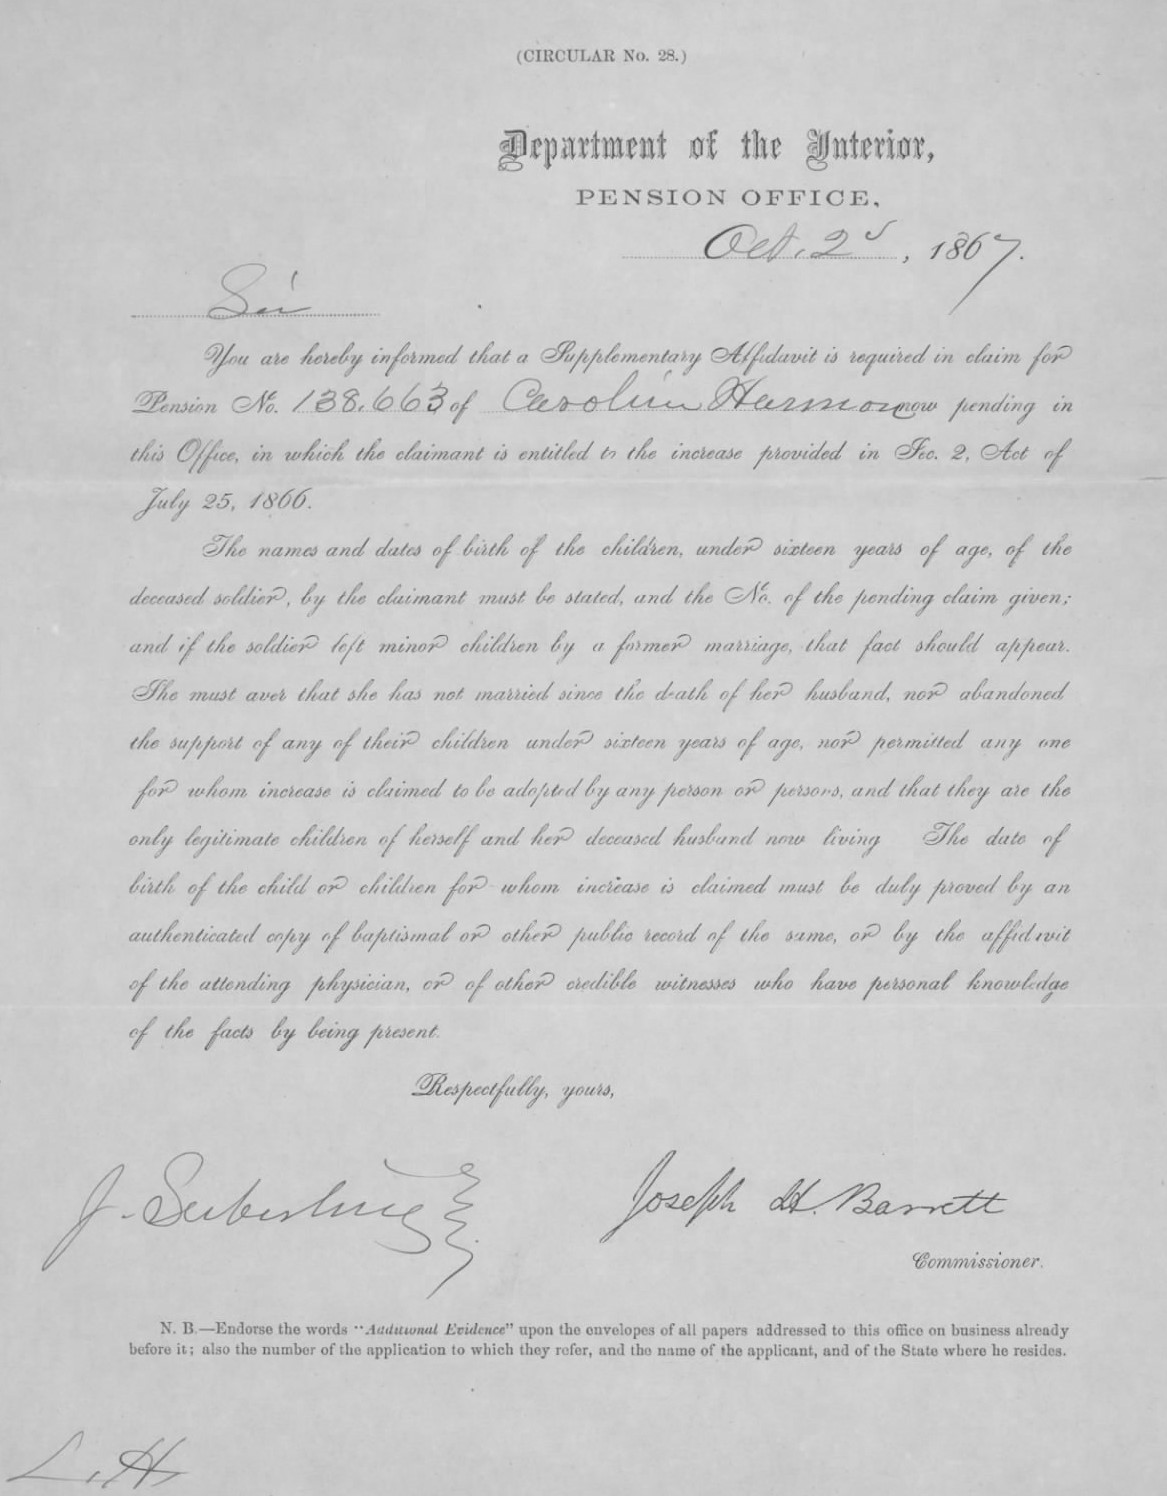 (CIRCULAR No. 28.)
Department of the Interior,
PENSION OFFICE,
Oct. 2d, 1867.
Sir
You are hereby informed that a Supplementary Affidavit is required in claim for
Pension No. 138.663 of Carolin Harmon now pending in
this Office, in which the claimant is entitled to the increase provided in Sec. 2, Act of
July 25, 1866.
The names and dates of birth of the children, under sixteen years of age, of the
deceased soldier, by the claimant must be stated, and the No. of the pending claim given;
and if the soldier left minor children by a former marriage, that fact should appear.
She must aver that she has not married since the death of her husband, nor abandoned
the support of any of their children under sixteen years of age, nor permitted any one
for whom increase is claimed to be adopted by any person or persons, and that they are the
only legitimate children of herself and her deceased husband now living The date of
birth of the child or children for whom increase is claimed must be duly proved by an
authenticated copy of baptismal or other public record of the same, or by the affidavit
of the attending physician, or of other credible witnesses who have personal knowledge
of the facts by being present.
Respectfully, yours,
J. Seiberling
Joseph H. Barrett
Commissioner.
N. B.—Endorse the words "Additional Evidence" upon the envelopes of all papers addressed to this office on business already
before it; also the number of the application to which they refer, and the name of the applicant, and of the State where he resides.
L. H.